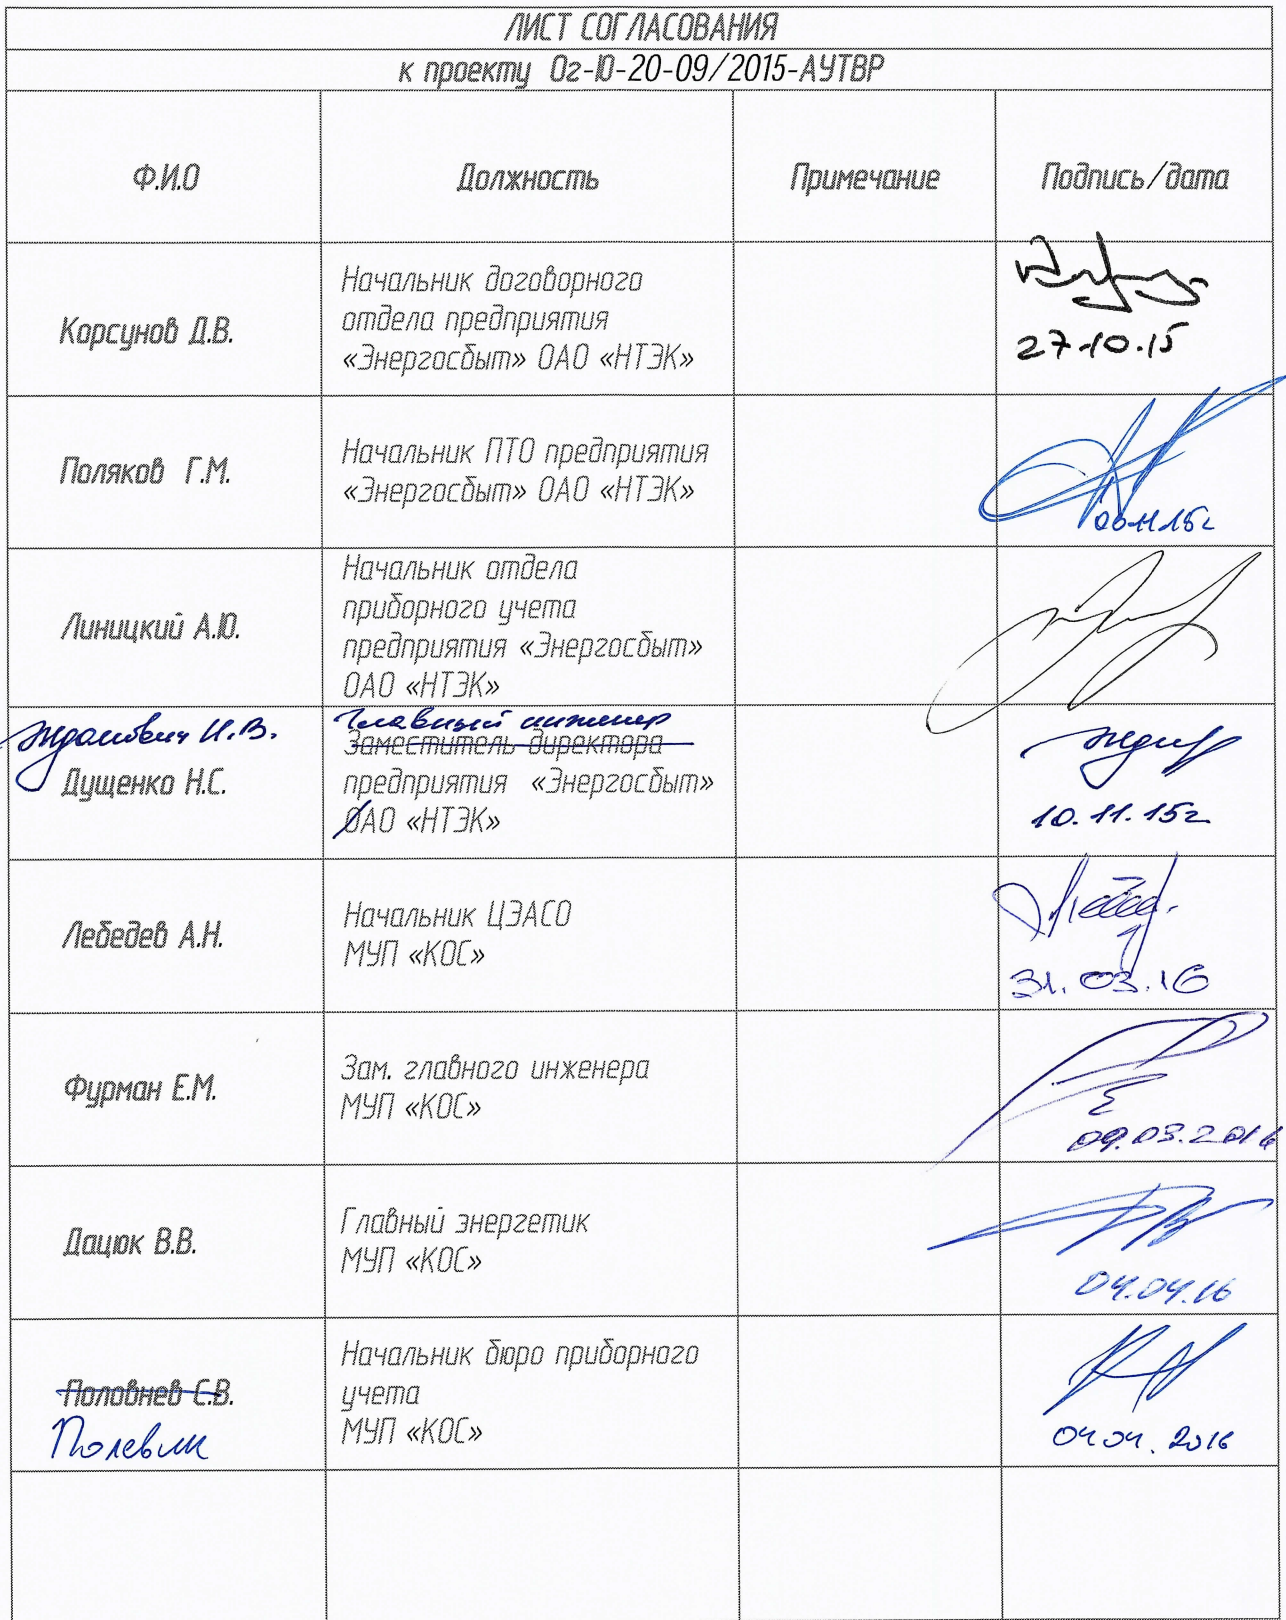 ЛИСТ СОГЛАСОВАНИЯ
к проекту Ог-Ю-20-09/2015-АУТВР
Ф.И.О
Должность
Примечание
Подпись/дата
Корсунов Д.В.
Начальник договорного
отдела предприятия
«Энергосбыт» ОАО «НТЭК»
27.10.15
Поляков Г.М.
Начальник ПТО предприятия
«Энергосбыт» ОАО «НТЭК»
06.11.15г
Линицкий А.Ю.
Начальник отдела
приборного учета
предприятия «Энергосбыт»
ОАО «НТЭК»
Жданович И.В.
Дущенко Н.С.
Главный инженер
Заместитель директора
предприятия «Энергосбыт»
ОАО «НТЭК»
10.11.15г
Лебедев А.Н.
Начальник ЦЭАСО
МУП «КОС»
31.03.16
Фурман Е.М.
Зам. главного инженера
МУП «КОС»
09.03.2016
Дацюк В.В.
Главный энергетик
МУП «КОС»
04.04.16
Половнев С.В.
Полевик
Начальник бюро приборного
учета
МУП «КОС»
04.04.2016